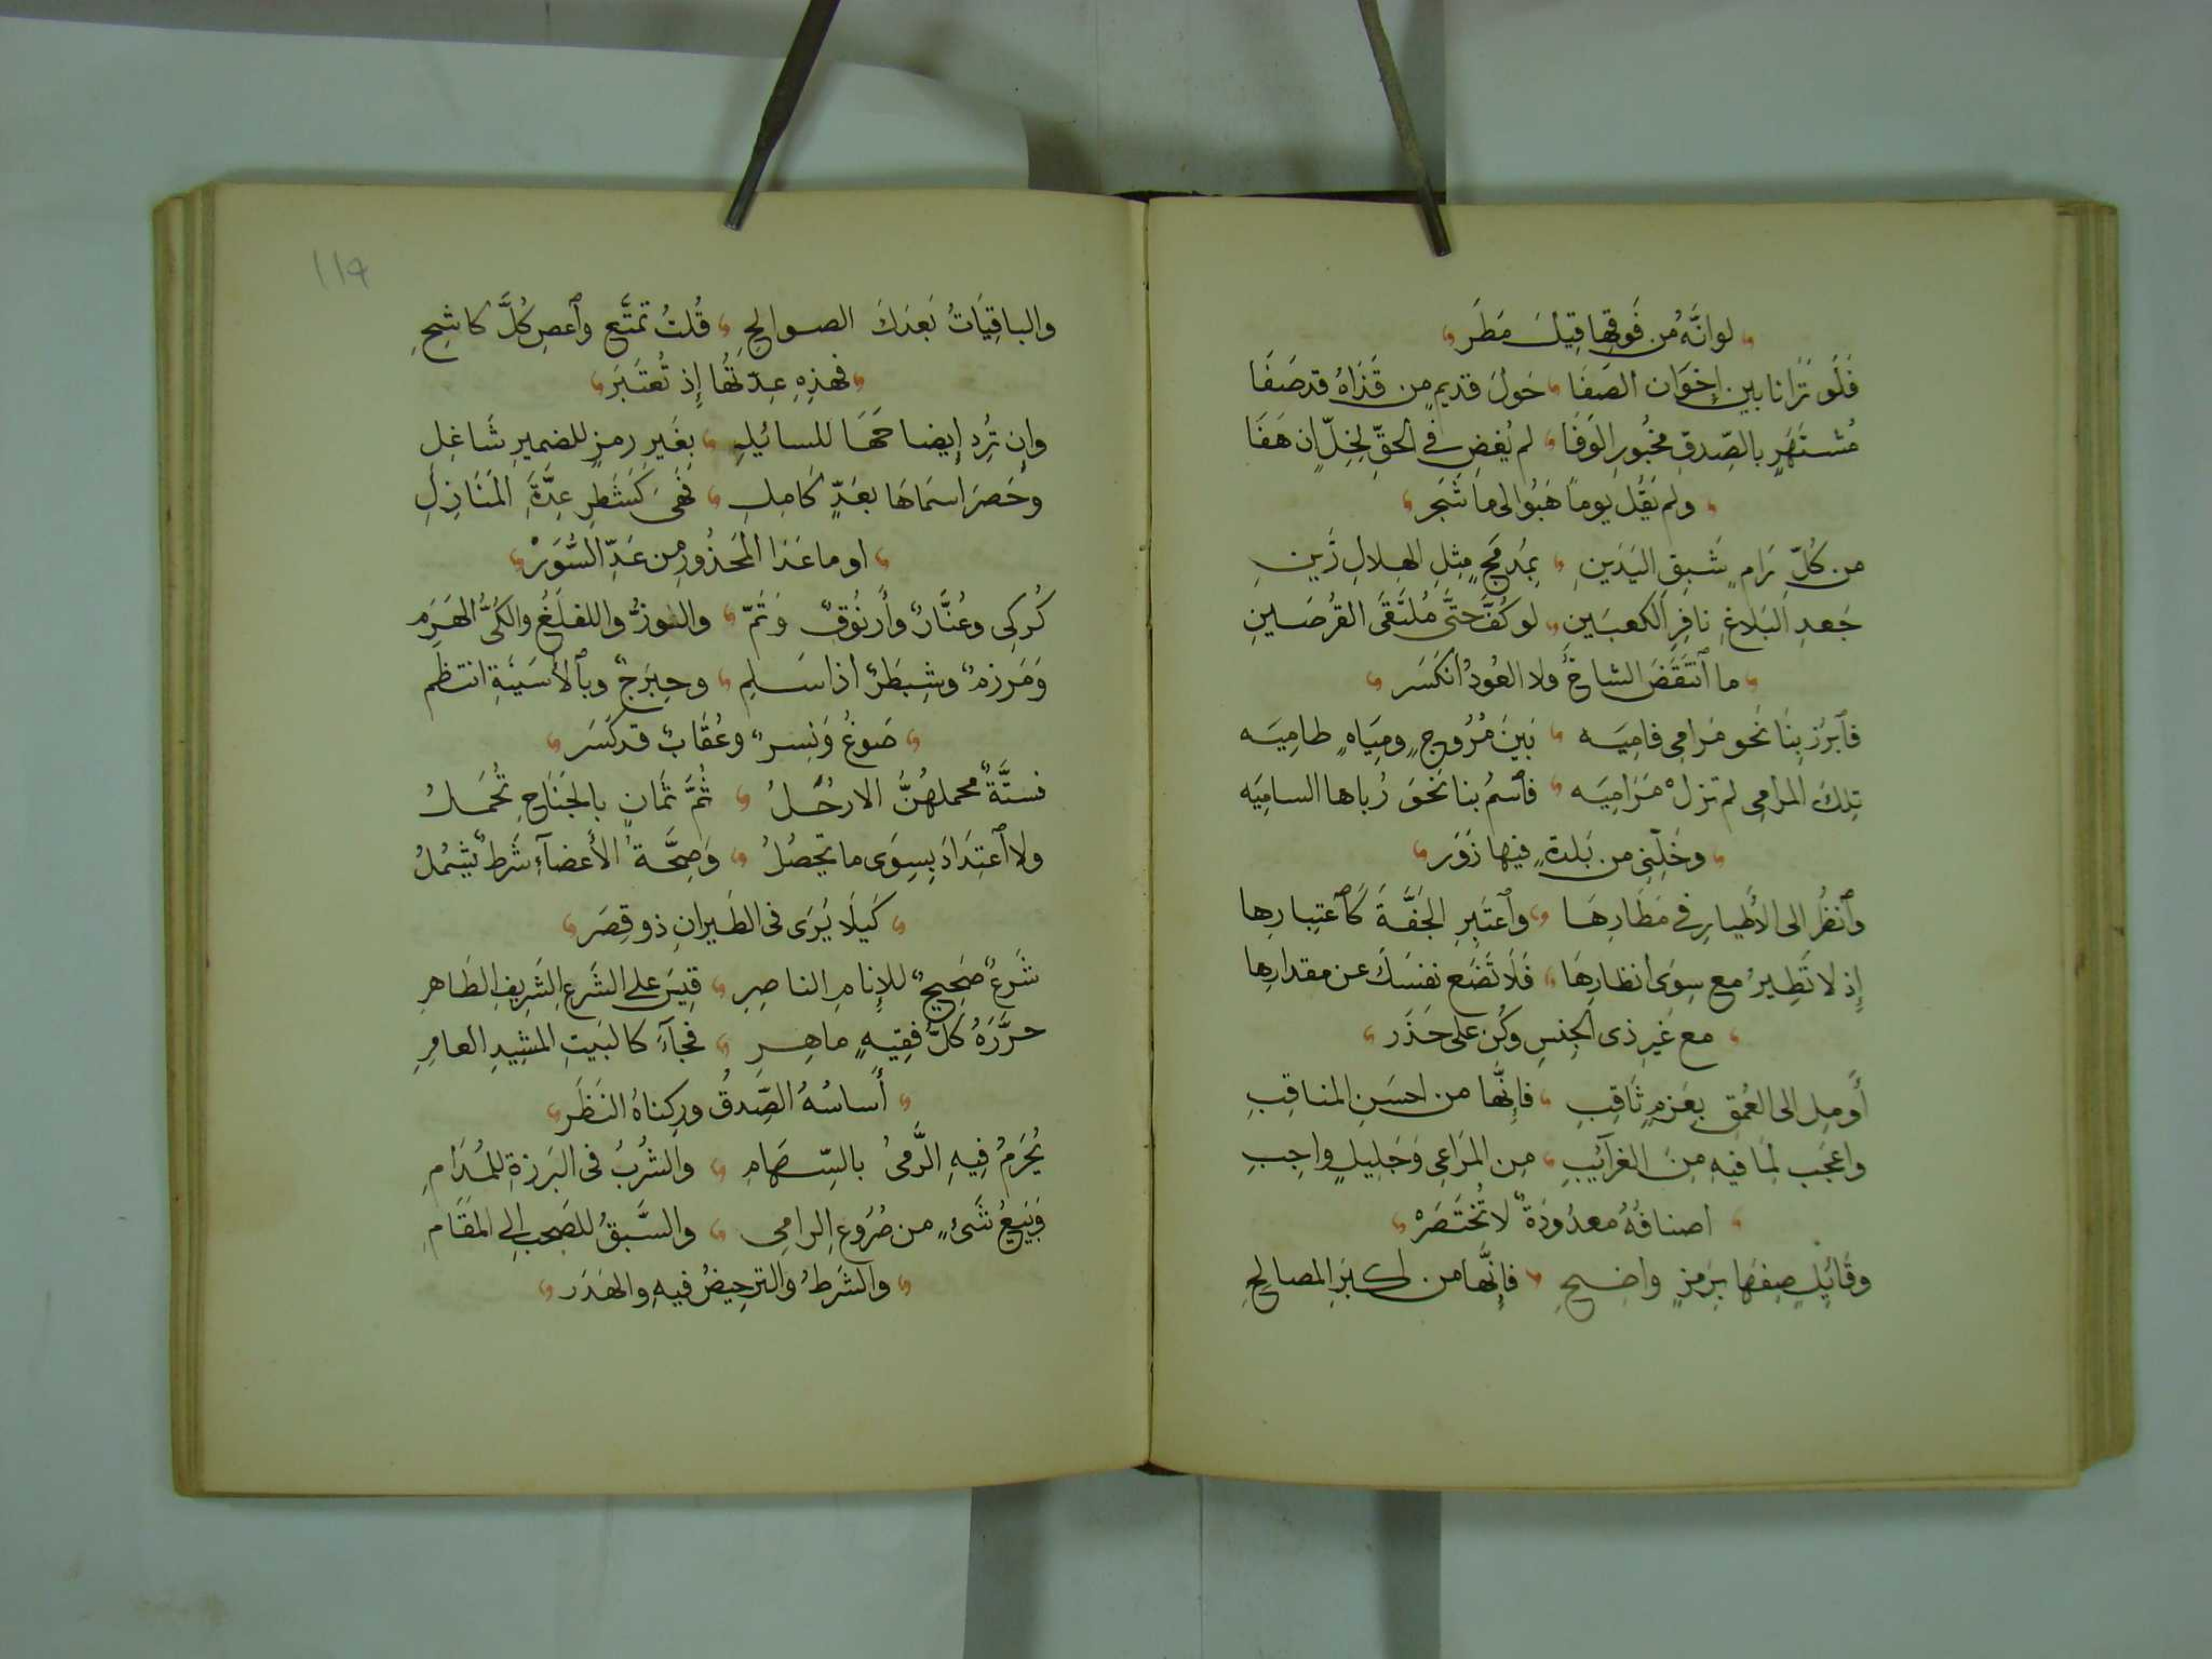 لوانَّهُ من فَوقِها قِيلَ مَطَر
فَلَو تَرَانا بين إِخوَان الصَفَا حَولَ قديمٍ من قَذَاهُ قد صَفَا
مُشتَهَرٍ بالصِّدقِ مخبُورِ الوَفَا لم يُغضِ في الحقِّ لخِلٍّ ان هَفَا
ولم يَقُل يوماً هَبُوا لى ما شَجَر
من كُلِّ رَامٍ شَبِقِ اليَدَينِ بمُدمَجٍ مِثلِ الهِلالِ زَينِ
جَعدِ البَلاغِ نافِرِ الكعبَينِ لو كُفَّ حتَّى مُلتَقَى القُرصَينِ
ما ٱنتَقَضَ الشاخُ ولا العُودُ انكَسَر
فٱبرُز بِنَا نَحو مَرامِى فامِيَه بَينَ مُرُوجٍ ومِيَاهٍ طامِيَه
تِلكَ المرامِى لم تزلْ مَرَامِيَه فٱسمُ بنا نَحوَ رُباها السامِيَه
وخَلِّنِى من بَلدةٍ فيها زَوَر
وٱنظُر الى الأَطيارِ في مَطَارِهَا وٱعتَبِرِ الجَفَّةَ كَٱعتِبارِها
إِذ لا تَطِيرُ مع سِوَى انظارِهَا فَلَا تَضَع نفسَكَ عن مقدارِها
مع غَيرِ ذى الجِنسِ وكُن على حَذَر
أَومِل الى العُمقِ بِعَزمٍ ثَاقِبِ فإِنَّها من احسَنِ المناقِبِ
واعجَب لِمَا فيهِ مِنَ الغرآئبِ مِن المَرَاعِى وَجَلِيلٍ واجِبِ
اصنافُهُ معدُودَةٌ لا تُختَصَرْ
وقَائِلٍ صِفهَا بِرَمزٍ واضِحِ فإِنَّها من اكبَرِ المصالِحِ
١١٩
والباقِيَاتُ بَعدَكَ الصوالِحِ قُلتُ تمتَّع وٱعصِ كُلَّ كاشِحِ
فهذِهِ عِدّتُها إِذ تُعتَبَر
وإِن تُرِد إِيضاحَهَا للسائِلِ بغَيرِ رمزٍ للضميرِ شَاغِلِ
وحَصرَ اسمَاهَا بعَدٍّ كَامِلِ فَهىَ كَشَطرِ عِدَّةِ المَنَازِلِ
او ما غَدَا المَحذُور من عَدِّ السُّوَرْ
كُركِى وعُنَّازٌ وأَرنُوقٌ وَتَمّ والوزُّ واللغلَغُ والكَىُّ الهَرِم
وَمَرزَمٌ وشِبطَرٌ اذا سَلِم وحِبرَجٌ وبٱلأَسيَنَةِ انتظم
صَوغُ وَنِسرٌ وعُقَابٌ قد كَسَر
فستَّةٌ محملهُنَّ الارجُلُ ثُمَّ ثَمَانٍ بالجَنَاحِ تُحمَلُ
ولا ٱعتِدَادَ بِسِوَى ما يحصُلُ وَصِحَّةُ الأَعضآءِ شَرطٌ يَشمُلُ
كَيلَا يُرَى فى الطَيرانِ ذو قِصَر
شَرعٌ صَحِيحٌ للإِمامِ الناصِرِ قِيسَ على الشَرعِ الشَرِيفِ الطَاهرِ
حرَّرَهُ كلُّ فقِيهٍ ماهِرِ فجآءَ كالبَيتِ المشِيدِ العامِرِ
أَساسُهُ الصِّدقُ وركناهُ النَظَر
يُحرَمُ فِيهِ الرَّمىُ بالسِّهَامِ والشُربُ فى البَرزةِ للمُدَامِ
وبَيعُ شَىءٍ من صُرُوعِ الرامِى والسَّبقُ للصَحبِ الى المَقَامِ
والشَرطُ والترحِيضُ فيهِ والهَدَر